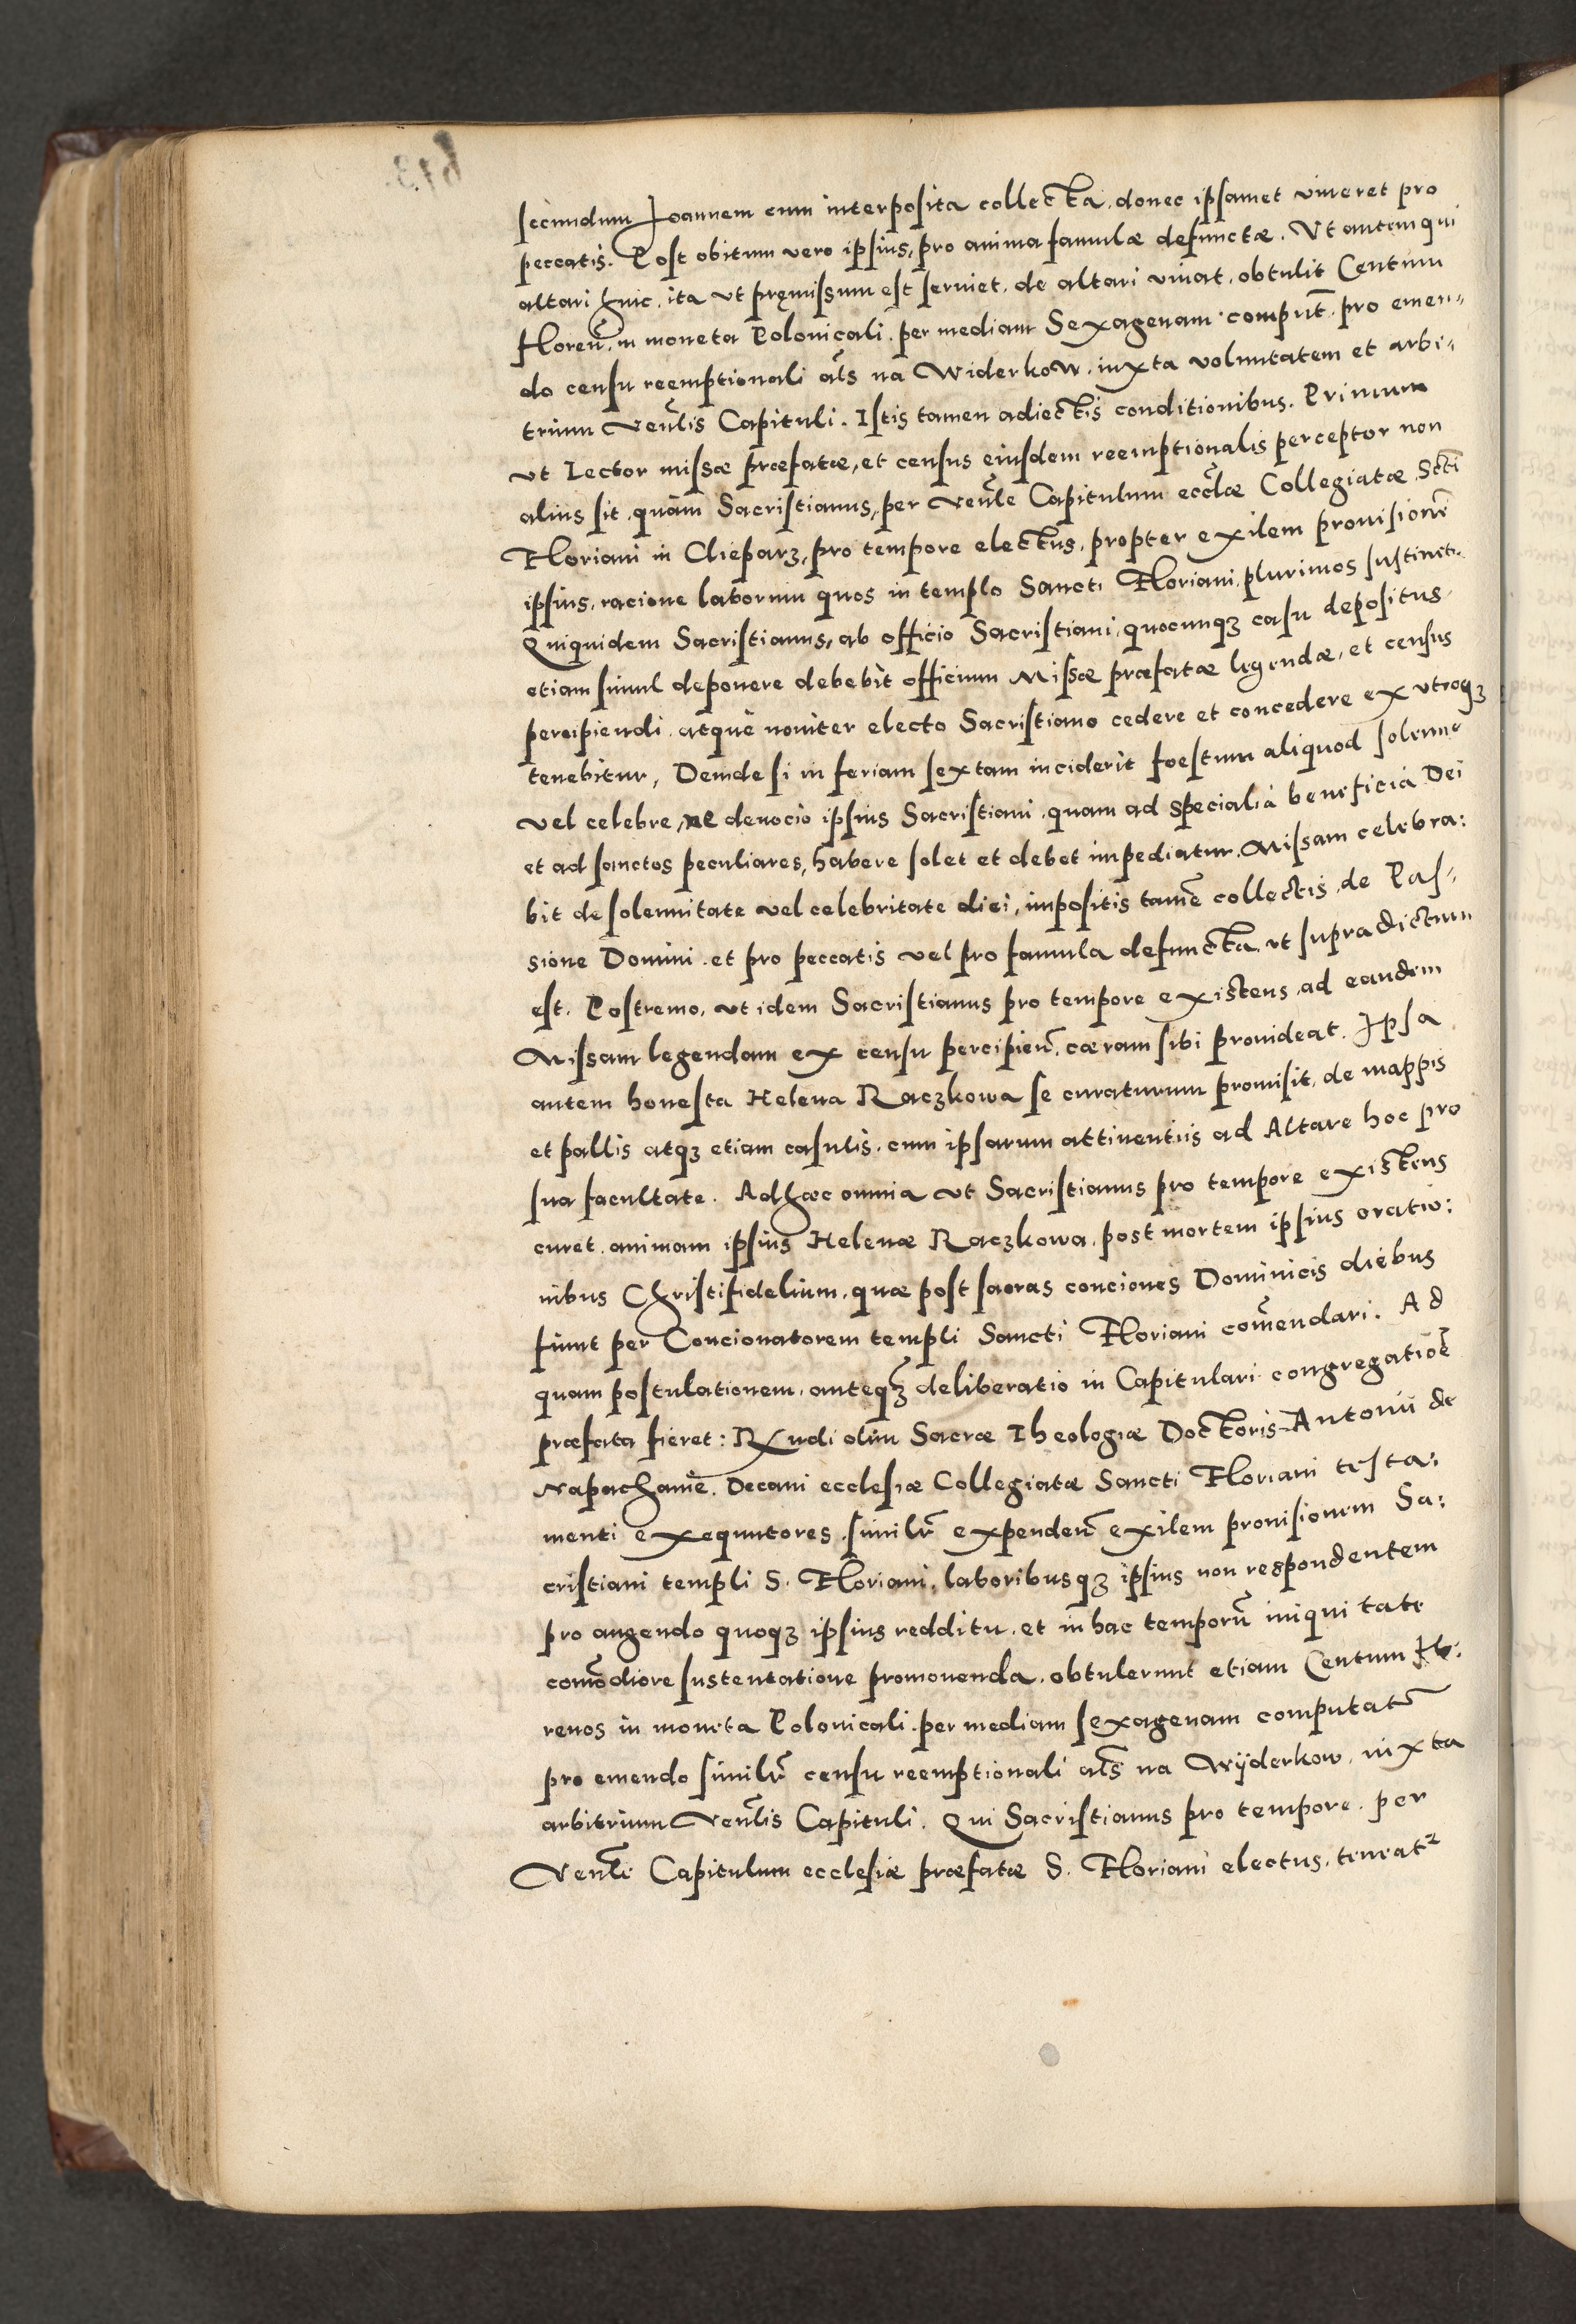 secundum Ioannem cum interposita collecta, donec ipsamet viueret pro
peccatis. Post obitum vero ipsius, pro anima famulæ defunctæ. Vt autem qui
altari huic, ita vt pręmissum est seruiet, de altari viuat, obtulit Centum
floreñ, in moneta Polonicali, per mediam Sexagenam comput̃, pro emen„
do censu reemptionali al̃s na Widerkow, iuxta voluntatem et arbi„
trium Veñlis Capituli. Istis tamen adiectis conditionibus. Primum
vt Lector missæ præfatæ, et census eiusdem reemptionalis perceptor non
alius sit, quàm Sacristianus, per Veñle Capitulum eccl̃æ Collegiatæ Sc̃ti
Floriani in Clieparz, pro tempore electus, propter exilem prouisionẽ
ipsius, racione laborum quos in templo Sancti Floriani, plurimos sustinet.
Quiquidem Sacristianus, ab officio Sacristiani, quocunqꝫ casu depositus
etiam simul deponere debebit officium Missæ præfatæ legendæ, et census
percipiendi, atque nouiter electo Sacristiano cedere et concedere ex vtroqꝫ
tenebitur, Deinde si in feriam sextam inciderit foestum aliquod solenne
vel celebre, ne deuocio ipsius Sacristiani, quam ad specialia beneficia Dei
et ad sanctos peculiares, habere solet et debet impediatur. Missam celebra:
bit de solennitate vel celebritate diei, impositis tamẽ collectis, de Pas„
sione Domini, et pro peccatis vel pro famula defuncta, vt supradictum
est. Postremo, vt idem Sacristianus pro tempore existens, ad eandem
Missam legendam ex censu percipieñ, cæram sibi prouideat. Ipsa
autem honesta Helena Raczkowa se curaturum promisit, de mappis
et pallis atqꝫ etiam casulis, cum ipsarum attinentiis ad Altare hoc pro
sua facultate. Adhæc omnia vt Sacristianus pro tempore existens
curet, animam ipsius Helenæ Raczkowa, post mortem ipsius oratio:
nibus Christifidelium, quæ post sacras conciones Dominicis diebus
fiunt per Concionatorem templi Sancti Floriani com̃endari. Ad
quam postulationem, anteqꝫ deliberatio in Capitulari congregatiõe
præfata fieret: Rxndi olim Sacræ Theologiæ Doctoris Antonii de
Napachanie, Decani ecclesiæ Collegiatæ Sancti Floriani testa:
menti exequutores, simil̃r expendeñ exilem prouisionem Sa:
cristiani templi S. Floriani, laboribusqꝫ ipsius non respondentem
pro augendo quoqꝫ ipsius redditu, et in hac temporũ iniquitate
com̃odiore sustentatione promouenda, obtulerunt etiam Centum flo:
renos in moneta Polonicali, per mediam sexagenam computat̃
pro emendo simil̃r censu reemptionali al̃s na Wÿderkow, iuxta
arbitrium Veñlis Capituli. Qui Sacristianus pro tempore, per
Veñle Capitulum ecclesiæ præfatæ S. Floriani electus, teneatr